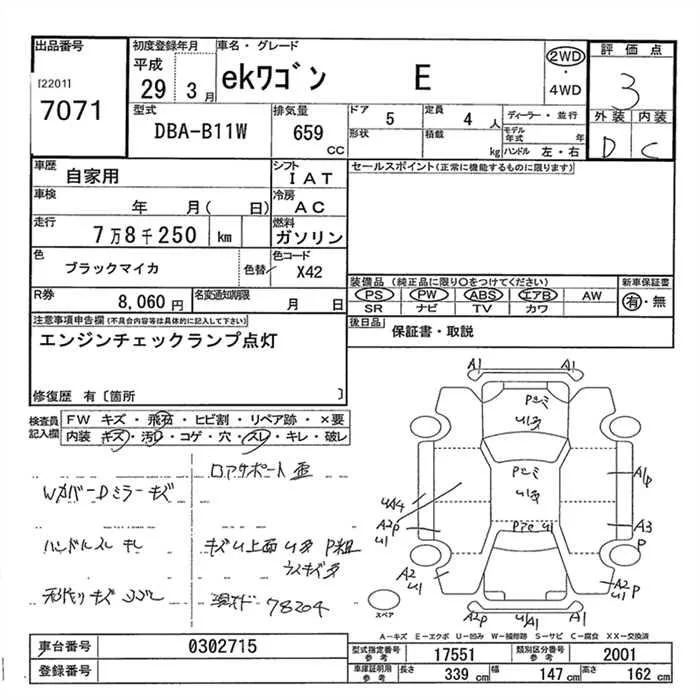 出品番号 初度登録年月 車名・グレード 評価点
[2201] 平成 29 3月 ekワゴン E 2WD・4WD 3
7071
型式 排気量 ドア 5 定員 4人 ディーラー・並行 外装 内装
DBA-B11W 659cc 形状 積載 kg モデル年式 年 D C
ハンドル 左・右
車歴 自家用 シフト IAT セールスポイント(正常に機能するものに限ります)
車検 年 月( 日) 冷房 AC
走行 7万8千250 km 燃料 ガソリン
色 ブラックマイカ 色替 色コード X42
装備品(純正品に限り○をつけてください) 新車保証書
PS PW ABS エアB AW 有・無
SR ナビ TV カワ
R券 8,060円 名変通知期限 月 日
後日品 保証書・取説
注意事項申告欄(不具合内容等は具体的に記入して下さい)
エンジンチェックランプ点灯
修復歴 有〔箇所 〕
検査員記入欄 FW キズ・飛石・ヒビ割・リペア跡・×要
内装 キズ・汚レ・コゲ・穴・スレ・キレ・破レ
ロアサポート
Wカバー Dミラーキズ
ハンドルスレ
キズU上面
78204
A1 A1
Pシミ
U1多
Pシミ
U1多
A1P
UA4
A2P
U1
A3
P
A2
U1
A2P
U1
A2P U/A1 A1
スペア
A-キズ E-エクボ U-凹み W-補修跡 S-サビ C-腐食 XX-交換済
車台番号 0302715
登録番号
型式指定番号 参考 17551 類別区分番号 参考 2001
車庫証明用 参考 長さ 339cm 幅 147cm 高さ 162cm